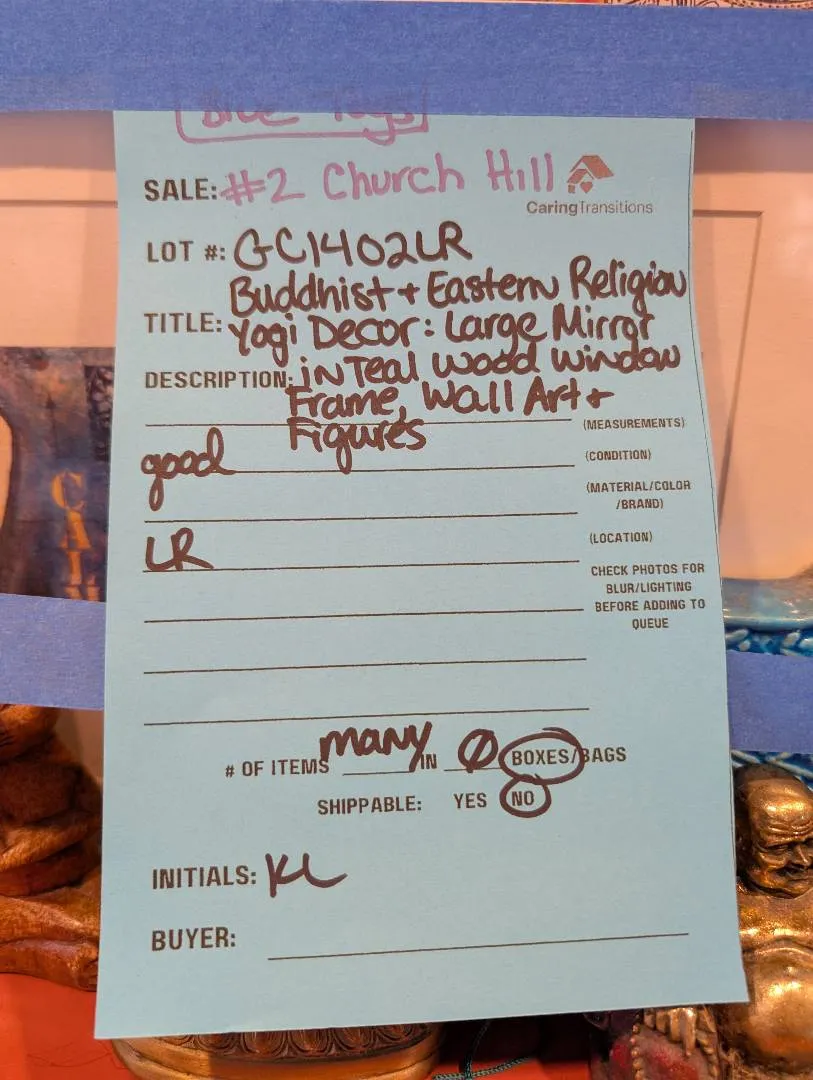 Blue Tags
SALE: #2 Church Hill
CaringTransitions
LOT #: GC1402LR
Buddhist + Eastern Religion
TITLE: Yogi Decor: Large Mirror
DESCRIPTION: in Teal Wood Window
Frame, Wall Art +
Figures
(MEASUREMENTS)
good (CONDITION)
(MATERIAL/COLOR
/BRAND)
LR (LOCATION)
CHECK PHOTOS FOR
BLUR/LIGHTING
BEFORE ADDING TO
QUEUE
# OF ITEMS many IN Ø BOXES/BAGS
SHIPPABLE: YES NO
INITIALS: KL
BUYER: